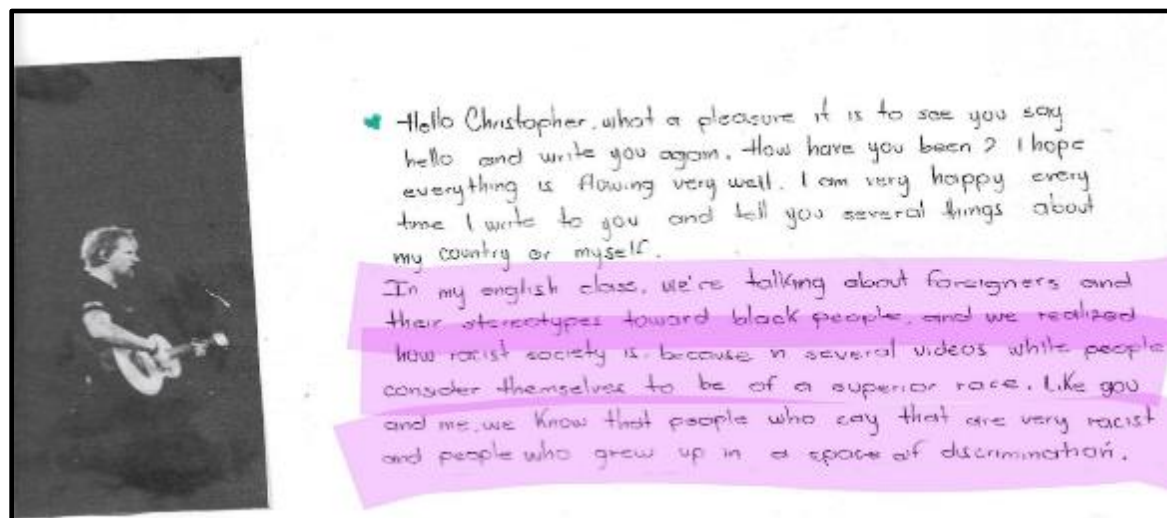 Hello Christopher, what a pleasure it is to see you say
hello and write you again. How have you been? I hope
everything is flowing very well. I am very happy every
time I write to you and tell you several things about
my country or myself.
In my english class, we're talking about foreigners and
their stereotypes toward black people, and we realized
how racist society is, because n several videos white people
consider themselves to be of a superior race. Like you
and me, we know that people who say that are very racist
and people who grew up in a space of discrimination.